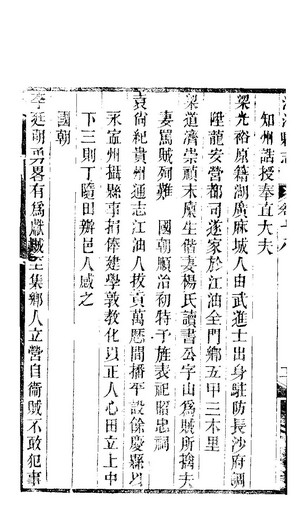 知州誥授奉直大夫
梁光裕原籍湖廣麻城人由武進士出身駐防長沙府調
陞龍安營都司遂家於江油全門鄉五甲三本里
梁道濟崇禎末廩生偕妻楊氏讀書公字山為賊所擒夫
妻罵賊殉難 國朝順治初特予旌表祀昭忠祠
袁尙紀貴州通志江油人拔貢萬厯間播平設餘慶縣以
永寍州攝縣事捐俸建學敦教化以正人心田立上中
下三則丁隨田辦邑人感之
國朝
李廷朝勇畧有為獻賊至集鄉人立營自衛賊不敢犯事